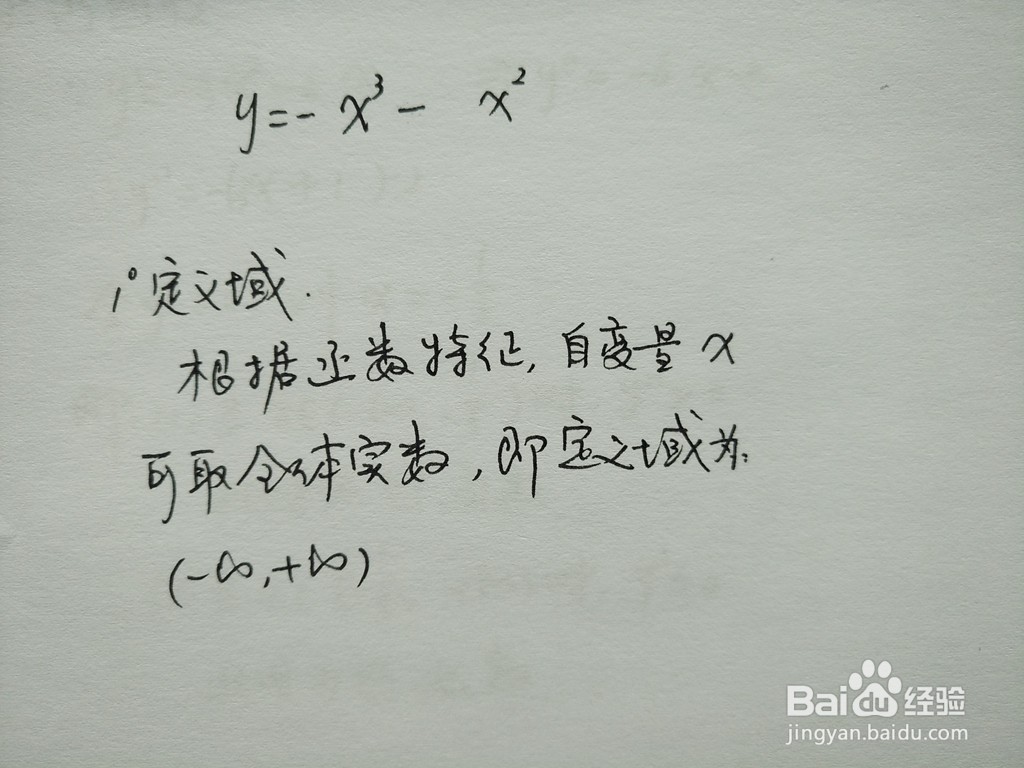 y=-x³- x²
1°定义域.
根据函数特征,自变量x
可取全体实数,即定义域为:
(-∞,+∞)
Bai经验
jingyan.baidu.com